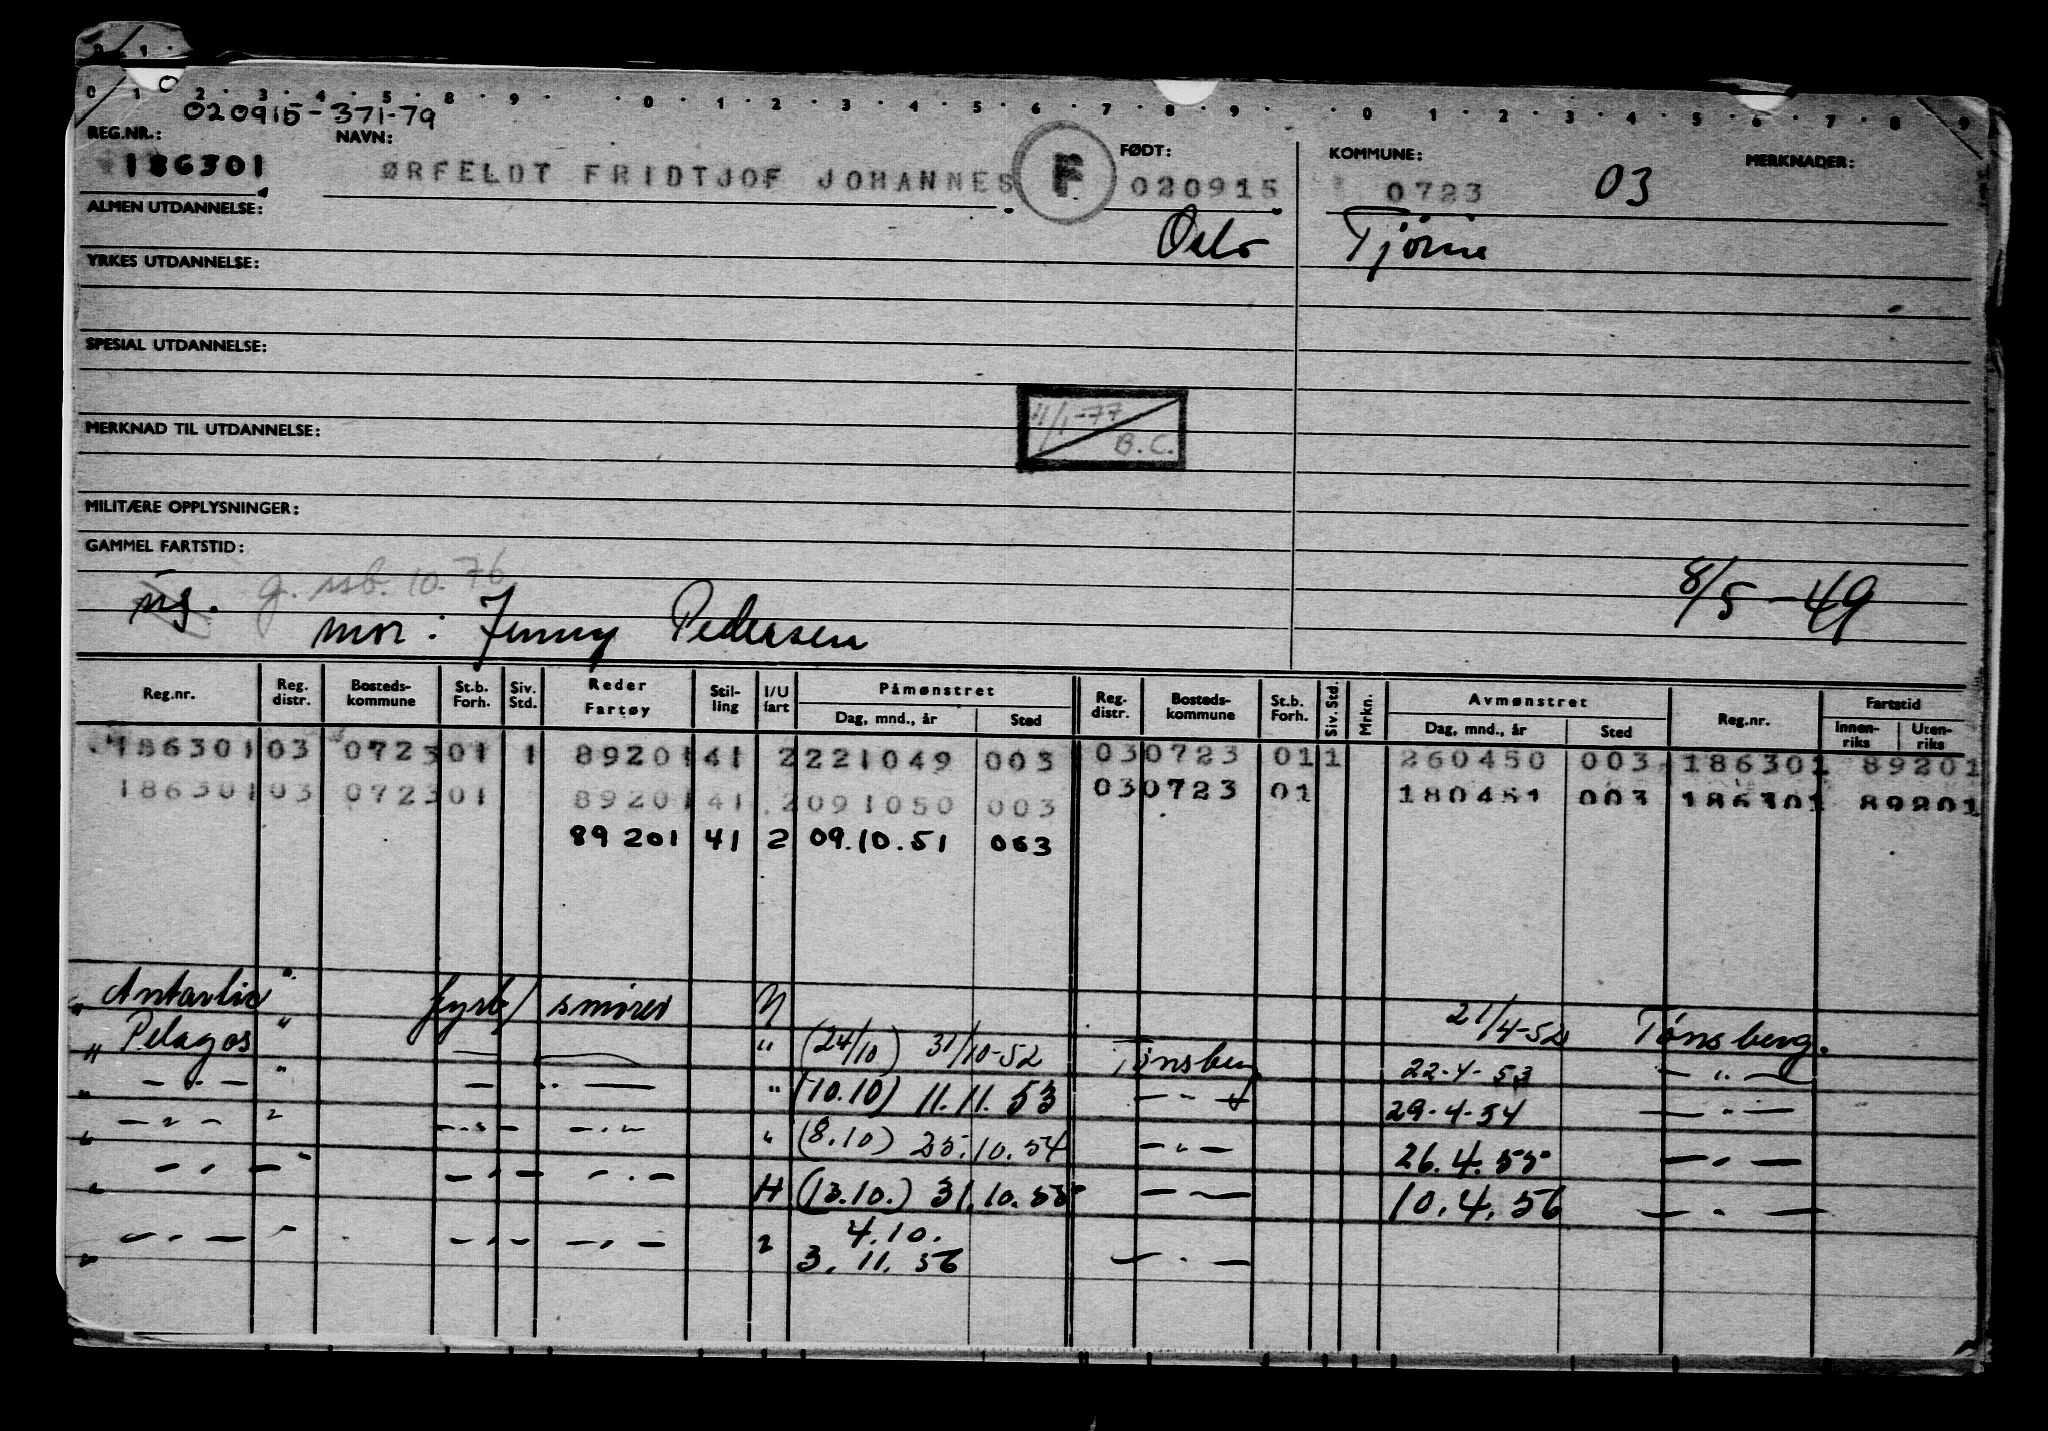 020915-371-79
REG.NR.: NAVN: FØDT: KOMMUNE: MERKNADER:
186301 ØRFELDT FRIDTJOF JOHANNES F 020915 0723 03
ALMEN UTDANNELSE: Oslo Tjøme
YRKES UTDANNELSE:
SPESIAL UTDANNELSE:
4/1-77 B.C.
MERKNAD TIL UTDANNELSE:
MILITÆRE OPPLYSNINGER:
GAMMEL FARTSTID:
ng. g. ssb. 10.76 8/5-49
mor: Jenny Pedersen
Reg.nr. Reg. distr. Bosteds-kommune St.b. Forh. Siv. Std. Reder Fartøy Stil-ling I/U fart Påmønstret Dag, mnd., år Sted Reg. distr. Bosteds-kommune St.b. Forh. Siv. Std. Mrkn. Avmønstret Dag, mnd., år Sted Reg.nr. Fartstid Innen-riks Uten-riks
186301 03 0723 01 1 89201 41 2 221049 003 03 0723 01 1 260450 003 186301 89201
186301 03 0723 01 89201 41 2 091050 003 03 0723 01 180451 003 186301 89201
89201 41 2 09.10.51 003
" Antarctic " fyrb/ smører N 21/4-52 Tønsberg.
" Pelagos " — — " (24/10) 31/10-52 Tønsberg 22-4-53 — " —
" — " — " — — " — " (10.10) 11.11.53 — " — 29-4-54 — " —
" — " — " — " — — " — " (8.10) 25.10.54 — " — 26.4.55 — " —
" — " — " — " — — " — H (13.10.) 31.10.55 — " — 10.4.56 — " —
" — " — " — " — — " — " 4.10.
3.11.56 — " —